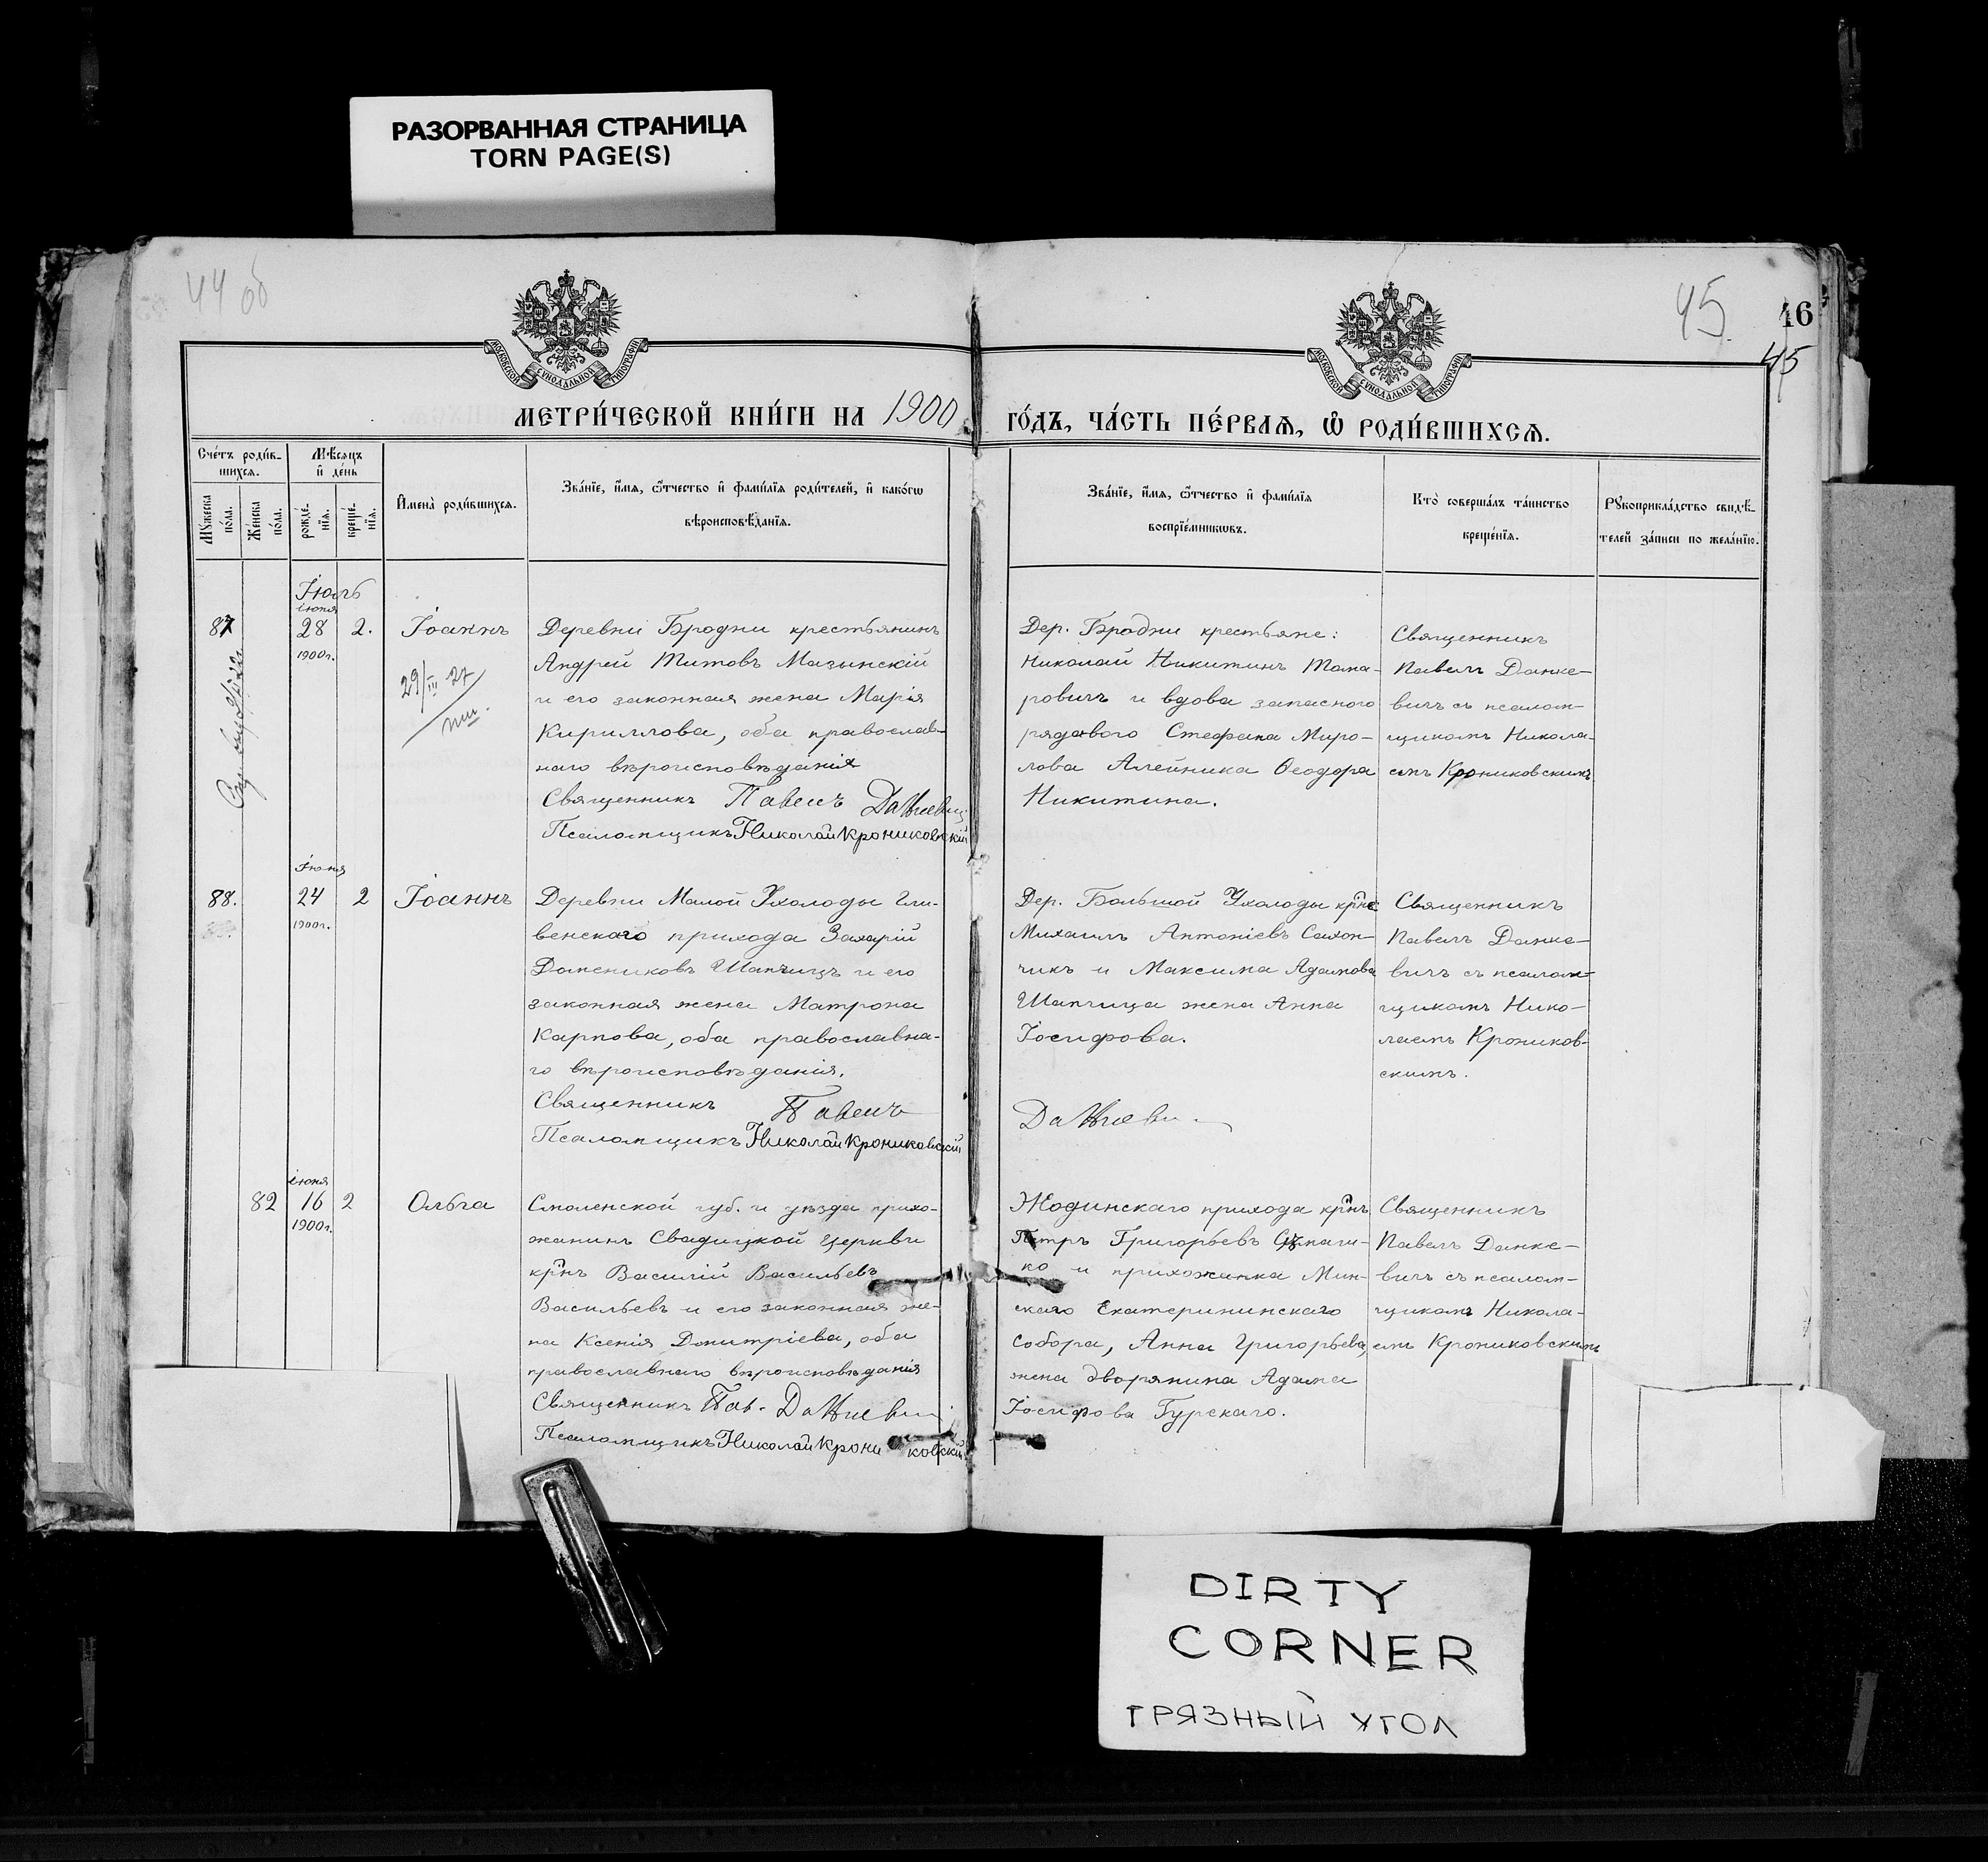 РАЗОРВАННАЯ СТРАНИЦА
TORN PAGE(S)
44 об
45
46
45
МОСКОВСКОЙ СѴНОДАЛЬНОЙ ТИПОГРАФІИ
МОСКОВСКОЙ СѴНОДАЛЬНОЙ ТИПОГРАФІИ
МЕТРИ́ЧЕСКОЙ КНИ́ГИ НА 1900 ГО́ДЪ, ЧА́СТЬ ПЕ́РВАѦ, Ѽ РОДИ́ВШИХСѦ.
Сче́тъ роди́в-
шихсѧ.
Мѣ́сѧцъ
и҆ де́нь
Мꙋ́жеска
по́ла.
Же́нска
по́ла.
рожде́-
нїѧ.
креще́-
нїѧ.
И҆мена̀ роди́вшихсѧ.
Зва́нїе, и҆́мѧ, ѻ҆́тчество и҆ фами́лїѧ роди́телей, и҆ како́гѡ
вѣроисповѣ́данїѧ.
Зва́нїе, и҆́мѧ, ѻ҆́тчество и҆ фами́лїѧ
воспрїе́мникѡвъ.
Кто̀ соверша́лъ та́инство
креще́нїѧ.
Рꙋкоприкла́дство свидѣ́-
телей за́писи по жела́нїю.
Іюль
87
іюня
28
1900г.
2.
Іоаннъ
29/III 27
Деревни Бродни крестьянинъ
Андрей Титовъ Мазынскій
и его законная жена Марія
Кириллова, оба православ-
наго вѣроисповѣданія
Священникъ Павелъ Данкевичъ
Псаломщикъ Николай Крониковскій
Дер. Бродни крестьяне:
Николай Никитинъ Тома-
ровичъ и вдова запаснаго
рядового Стефана Миро-
лова Алейника Ѳеодора
Никитина.
Священникъ
Павелъ Данке-
вичъ съ псалом-
щикомъ Никола-
емъ Крониковскимъ
88.
іюня
24
1900г.
2
Іоаннъ
Деревни Малой Ухолоды Гли-
венскаго прихода Захарій
Домениковъ Шапчицъ и его
законная жена Матрона
Карпова, оба православна-
го вѣроисповѣданія.
Священникъ Павелъ
Псаломщикъ Николай Крониковскій
Дер. Большой Ухолоды крне
Михаилъ Антоніевъ Сахон-
чикъ и Максима Адамова
Шапчица жена Анна
Іосифова.
Данкевичъ
Священникъ
Павелъ Данке-
вичъ съ псалом-
щикомъ Нико-
лаемъ Кроников-
скимъ.
82
іюня
16
1900г.
2
Ольга
Смоленской губ. и уѣзда прихо-
жанинъ Свадицкой церкви
крнъ Василій Васильевъ
Васильевъ и его законная же-
на Ксенія Димитріева, оба
православнаго вѣроисповѣданія
Священникъ Пав. Данкевичъ
Псаломщикъ Николай Крониковскій
Жодинскаго прихода крнъ
Петръ Григорьевъ
ко и прихожанка Мин-
скаго Екатерининскаго
собора, Анна Григорьева,
жена дворянина Адама
Іосифова Гурскаго.
Священникъ
Павелъ Данке-
вичъ съ псалом-
щикомъ Никола-
емъ Крониковскимъ
DIRTY
CORNER
ГРЯЗНЫЙ УГОЛ